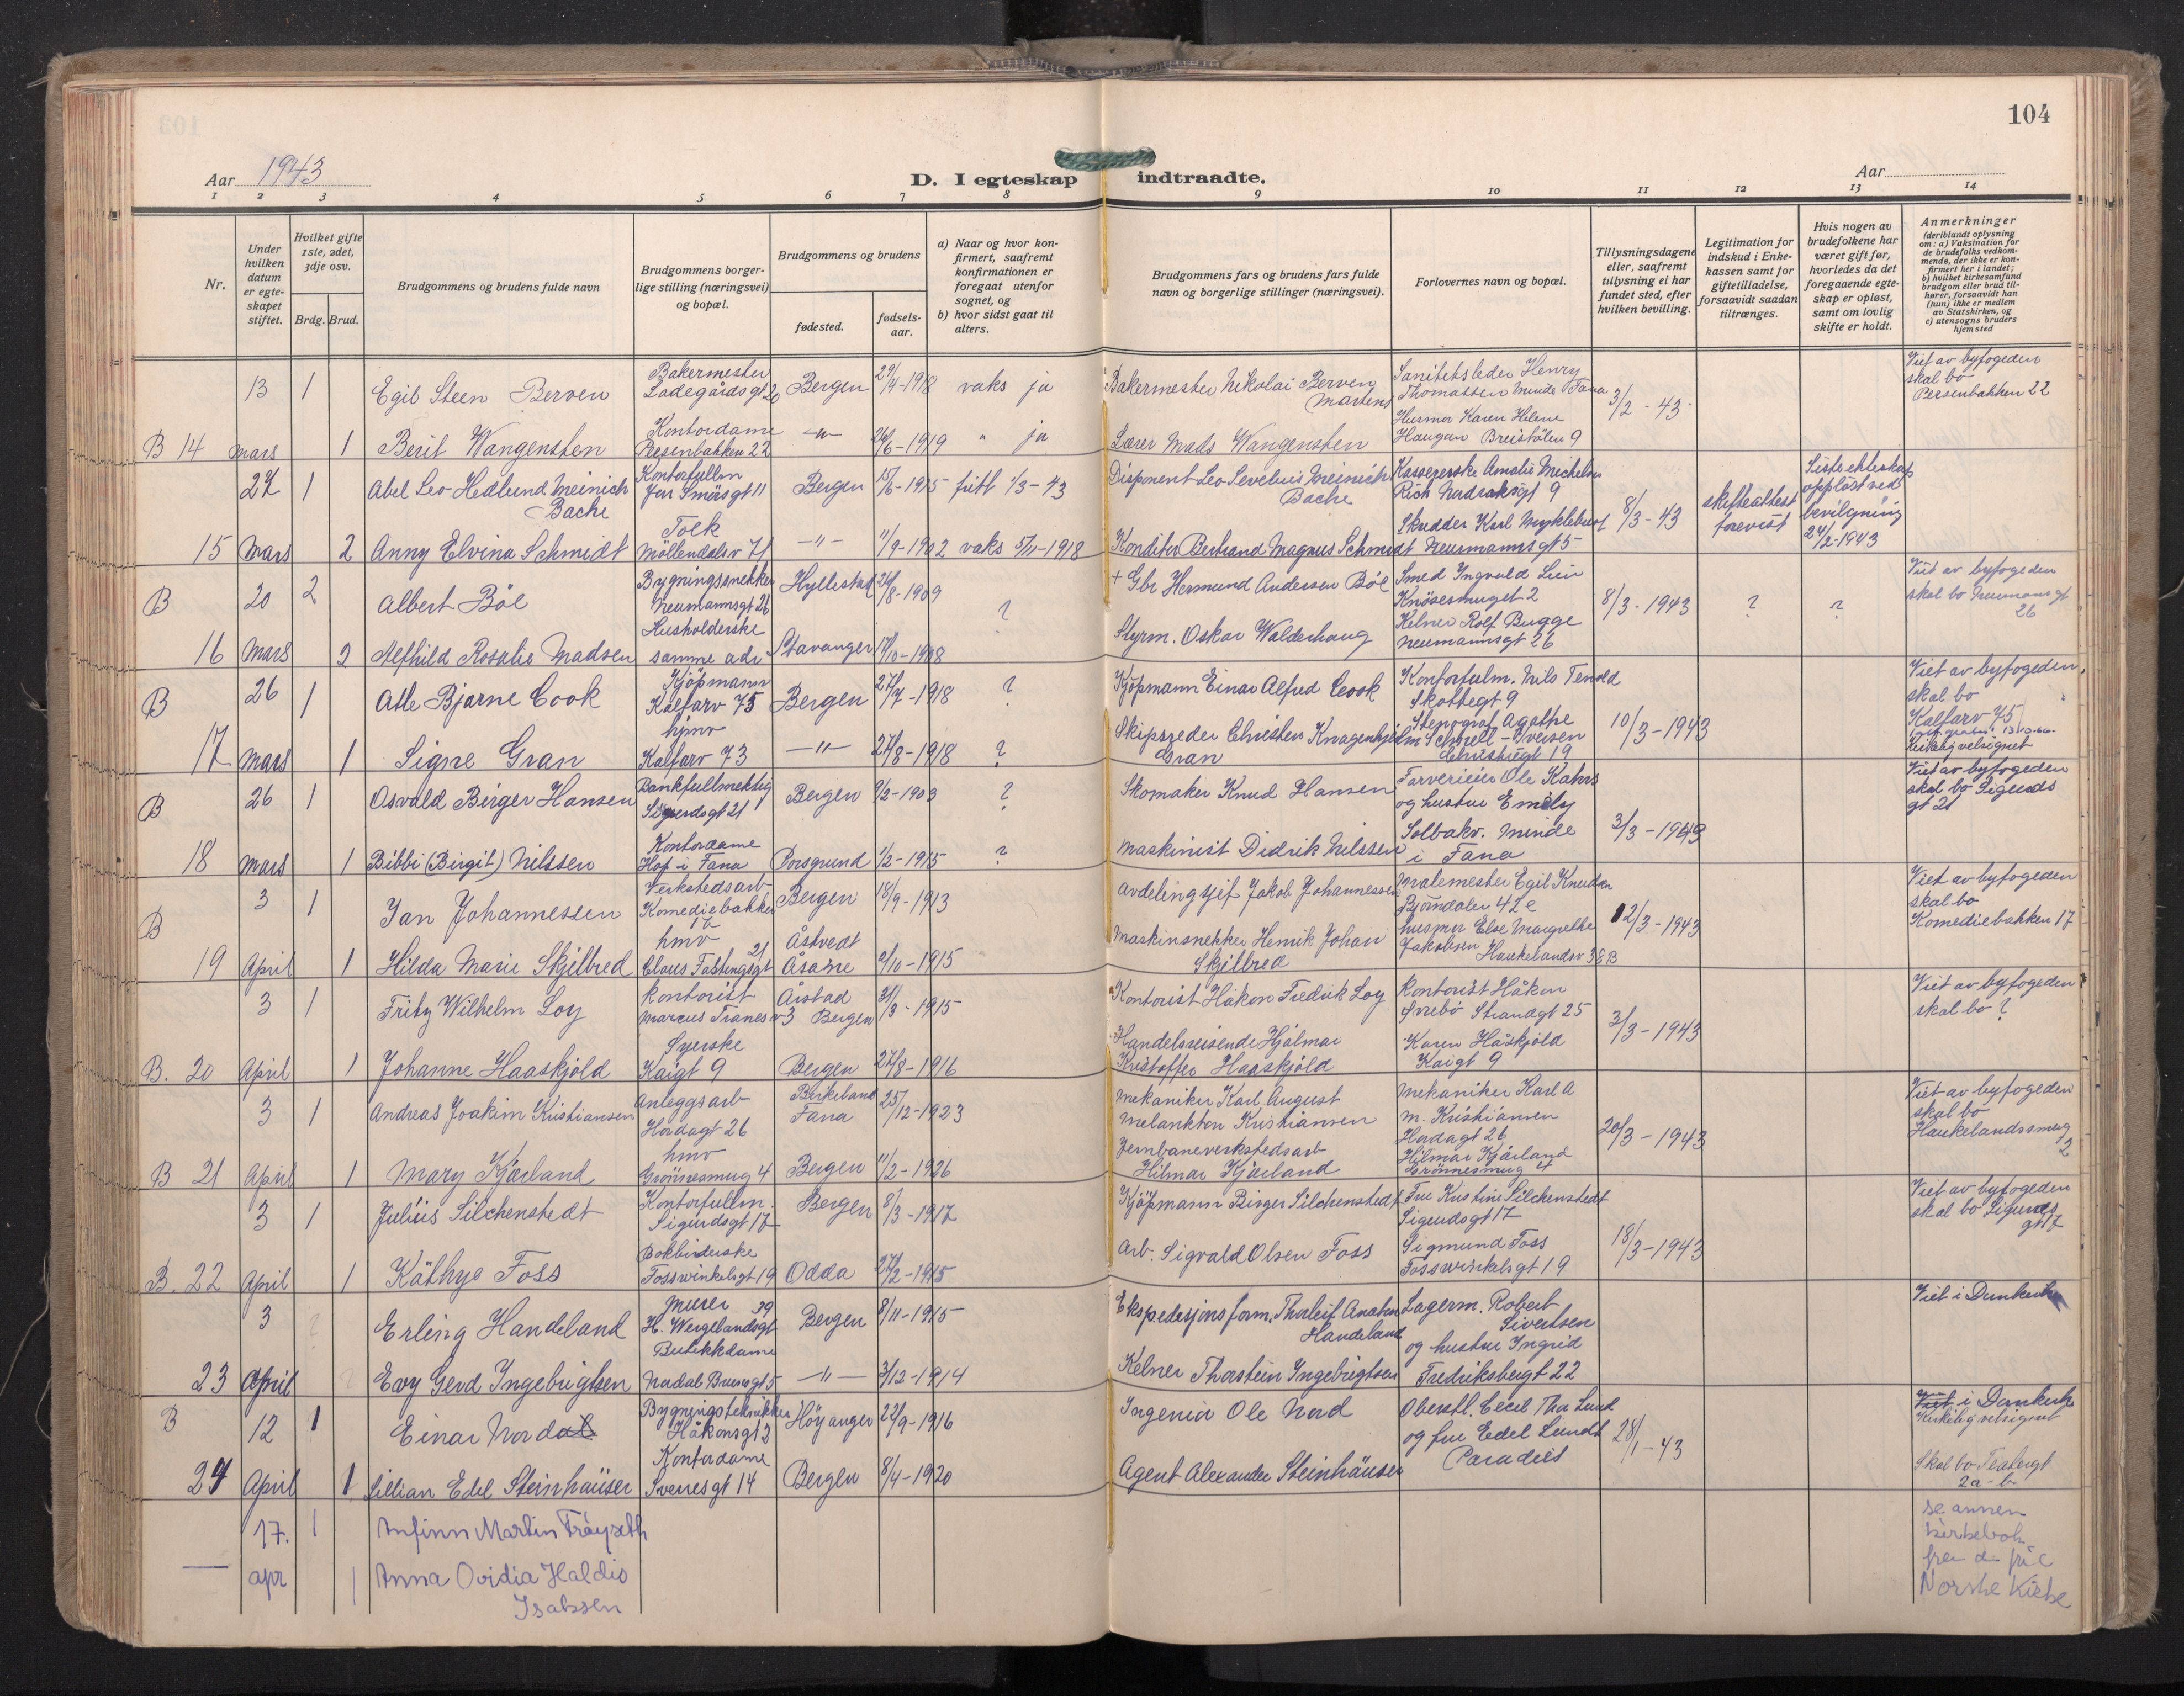 104
Aar 1943
D. I egteskap indtraadte.
Aar
1 2 3 4 5 6 7 8 9 10 11 12 13 14
Nr.
Under
hvilken
datum
er egte-
skapet
stiftet.
Hvilket gifte
1ste, 2det,
3dje osv.
Brdg. Brud.
Brudgommens og brudens fulde navn
Brudgommens borger-
lige stilling (næringsvei)
og bopæl.
Brudgommens og brudens
fødested.
fødsels-
aar.
a) Naar og hvor kon-
firmert, saafremt
konfirmationen er
foregaat utenfor
sognet, og
b) hvor sidst gaat til
alters.
Brudgommens fars og brudens fars fulde
navn og borgerlige stillinger (næringsvei).
Forlovernes navn og bopæl.
Tillysningsdagene
eller, saafremt
tillysning ei har
fundet sted, efter
hvilken bevilling.
Legitimation for
indskud i Enke-
kassen samt for
giftetilladelse,
forsaavidt saadan
tiltrænges.
Hvis nogen av
brudefolkene har
været gift før,
hvorledes da det
foregaaende egte-
skap er opløst,
samt om lovlig
skifte er holdt.
Anmerkninger
(deriblandt oplysning
om: a) Vaksination for
de brudefolks vedkom-
mende, der ikke er kon-
firmert her i landet;
b) hvilket kirkesamfund
brudgom eller brud til-
hører, forsaavidt han
(hun) ikke er medlem
av Statskirken, og
c) utensogns bruders
hjemsted
13 1 Egil Steen Berven
Bakermester
Ladegårdsgt 20
Bergen 29/4-1918 vaks ja
Bakermester Nikolai Berven
Martens
Sanitetsleder Henry
Thomassen Minde Fana
3/2-43
Viet av byfogeden
skal bo
Persenbakken 22
B 14 mars 1 Berit Wangensten
Kontordame
Persenbakken 22
-"- 26/6-1919 " ja
Lærer Mads Wangensten
Husmor Karen Helene
Haugan Breistölen 9
27 1 Abel Leo Hedlund Meinich
Bache
Kontorfullm
Jon Smörsgt 11
Bergen 15/6-1915 fritt 1/3-43
Disponent Leo Severius Meinich
Bache
Kassererske Amalie Michelsen
Rich Nordraksgt 9
8/3-43
skifteattest
forevist
Siste ekteskap
oppløst ved
bevilgning
24/2-1943
15 Mars 2 Anny Elvina Schmidt
Tolk
Möllendalsv 71
-"- 11/9-1902 vaks 5/11-1918
Konditor Bertrand Magnus Schmidt
Skudder Karl Myklebust
Neumannsgt 5
B 20 2 Albert Böe
Bygningssnekker
Neumannsgt 26
Hyllestad 26/8-1909 ?
+ Gbr Hermund Andersen Böe
Smed Ingvald Lien
Knösesmuget 2
8/3-1943 ? ?
Viet av byfogeden
skal bo Neumansgt
26
16 Mars 2 Alfhild Rosalie Madsen
Husholderske
samme adr
Stavanger 17/10-1908
Styrm. Oskar Walderhaug
Kelner Rolf Bugge
Neumannsgt 26
B 26 1 Atle Bjarne Cook
Kjöpmann
Kalfarv 75
Bergen 27/7-1918 ?
Kjöpmann Einar Alfred Cook
Kontorfulm. Nils Tenold
Skottegt 9
10/3-1943
Viet av byfogeden
skal bo
Kalfarv 75
Kirkelig velsignet
17 Mars 1 Signe Gran
hjmv
Kalfarv 73
-"- 27/8-1918 ?
Skipsreder Christen Knagenhjelm
Gran
Stenograf Agathe
Schnell-Iversen
Christiesgt 19
B 26 1 Osvald Birger Hansen
Bankfullmektig
Sigurdsgt 21
Bergen 9/2-1903 ?
Skomaker Knud Hansen
Farverieier Ole Kahrs
og hustru Emily
3/3-1943
Viet av byfogeden
skal bo Sigurds
gt 21
18 Mars 1 Bibbi (Birgit) Nilssen
Kontordame
Hop i Fana
Porsgrund 1/2-1915 ?
Maskinist Didrik Nilssen
Solbakv. Minde
i Fana
B 3 1 Jan Johannessen
Verkstedsarb
Komediebakken
17
Bergen 18/9-1913
Avdelingsjef Jakob Johannessen
Malemester Egil Knudsen
Björndalen 42e
12/3-1943
Viet av byfogeden
skal bo
Komediebakken 17
19 April 1 Hilda Marie Skjilbred
hmv
Claus Fastingsgt 21
Åstvedt
Åsane 2/10-1915
Maskinsnekker Henrik Johan
Skjilbred
husmor Else Margrethe
Jakobsen Haukelandsv 38B
3 1 Fritz Wilhelm Loy
Kontorist
Marcus Tranesv 3
Årstad
Bergen 31/3-1915
Kontorist Håkon Fredrik Loy
Kontorist Håkon
Svebö Strandgt 25
3/3-1943
Viet av byfogeden
skal bo ?
B. 20 April 1 Johanne Haaskjold
Syerske
Kaigt 9
Bergen 27/8-1916
Handelsreisende Hjalmar
Kristoffer Haaskjold
Karen Håskjold
Kaigt 9
3 1 Andreas Joakim Kristiansen
Anleggsarb
Hordagt 26
Birkeland
Fana 25/12-1923
Mekaniker Karl August
Melankton Kristiansen
Mekaniker Karl A
M. Kristiansen
Hordagt 26
20/3-1943
Viet av byfogeden
skal bo
Haukelandssmug
2
B 21 April 1 Mary Kjarland
hmv
Grönnesmug 4
Bergen 11/2-1926
Jernbaneverkstedsarb
Hilmar Kjarland
Hilmar Kjarland
Grönnesmug 4
3 1 Julius Silchenstedt
Kontorfullm.
Sigurdsgt 17
Bergen 8/3-1917
Kjöpmann Birger Silchenstedt
Fru Kristine Silchenstedt
Sigurdsgt 17
18/3-1943
Viet av byfogeden
skal bo Sigurds
gt 17
B. 22 April 1 Käthye Foss
Bokbinderske
Fosswinkelsgt 19
Odda 27/2-1915
Arb. Sigvald Olsen Foss
Sigmund Foss
Fosswinkelsgt 19
3 ? Erling Handeland
Murer
H. Wergelandsgt 39
Bergen 8/11-1915
Ekspedisjonsform. Thorleif Anaton
Handeland
Lagerm. Robert
Sivertsen
og hustru Ingrid
Viet i Domkirk
23 April ? Evy Gerd Ingebrigtsen
Butikkdame
Nadal Brunsgt 5
-"- 3/12-1914
Kelner Thorstein Ingebrigtsen
Fredriksbergt 22
B 12 1 Einar Nordal
Bygningstekniker
Håkonsgt 2
Höyanger 22/9-1916
Ingeniör Ole Nord
Oberstl. Cecil Thr Lund
og fru Edel Lundt
Paradiis
28/1-43
Viet i Domkirke
Kirkelig velsignet
Skal bo Teatergt
2a-b
24 April 1 Lillian Edel Steinhäuser
Kontordame
Sverresgt 14
Bergen 8/4-1920
Agent Alexander Steinhäuser
17. 1 Anfinn Martin Tröyseth
se annen
kirkebok
fra den frie
Norske Kirke
— apr 1 Anna Ovidia Haldis
Isaksen